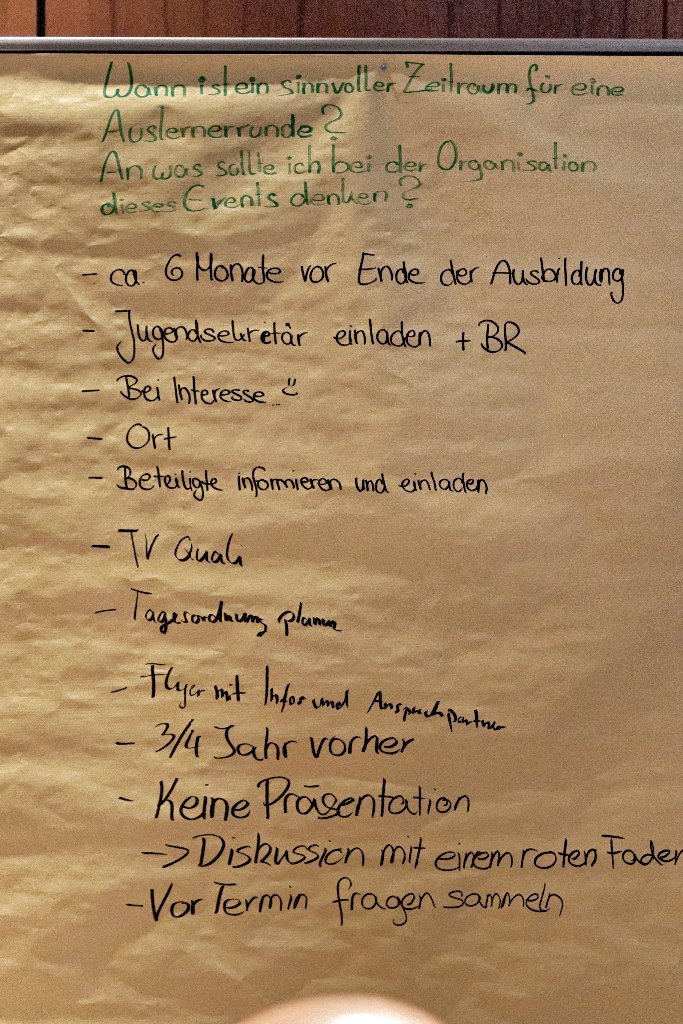 Wann ist ein sinnvoller Zeitraum für eine
Auslernerrunde?
An was sollte ich bei der Organisation
dieses Events denken?
- ca. 6 Monate vor Ende der Ausbildung
- Jugendsekretär einladen + BR
- Bei Interesse...
- Ort
- Beteiligte informieren und einladen
- TV Quali
- Tagesordnung planen
- Flyer mit Infos und Ansprechpartner
- 3/4 Jahr vorher
- Keine Präsentation
-> Diskussion mit einem roten Faden
- Vor Termin fragen sammeln